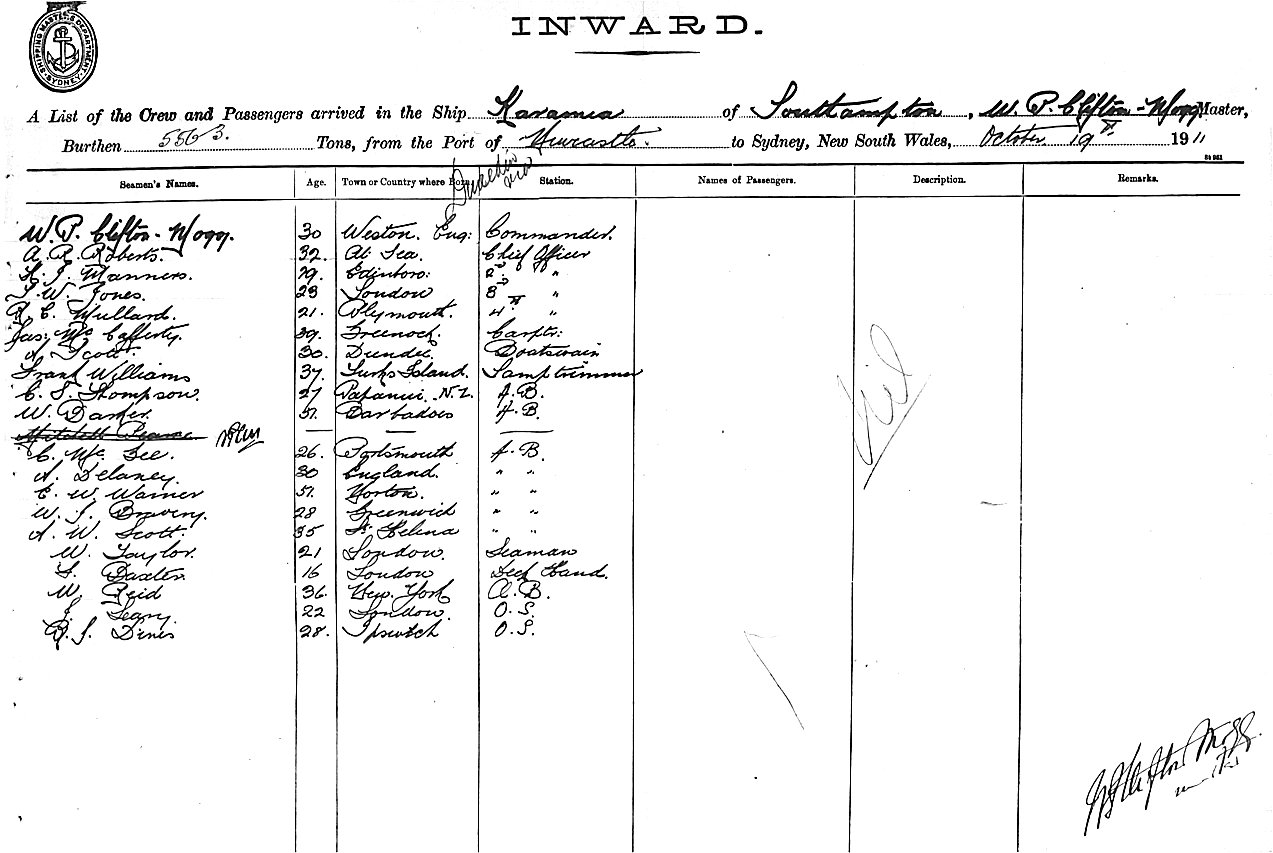 INWARD.
SHIPPING MASTER'S DEPARTMENT SYDNEY
A List of the Crew and Passengers arrived in the Ship Karamea of Southampton, W. P. Clifton-Mogg Master,
Burthen 5563. Tons, from the Port of Newcastle. to Sydney, New South Wales, October 19th 1911
Seamen's Names. Age. Town or Country where Born Station. Names of Passengers. Description. Remarks.
W. P. Clifton-Mogg. 30 Weston. Eng: Commander.
A. R. Roberts. 32. At Sea. Chief Officer
H. J. Manners. 29. Edinboro: 2nd "
J. W. Jones. 23 London 3rd "
R. C. Mullard. 21. Plymouth. 4th "
Jas: Mc Cafferty. 39. Greenock. Carptr:
A. Scott. 30. Dundee. Boatswain
Frank Williams 37. Turks Island. Lamptrimmer
C. S. Thompson. 27 Papanui. N.Z. A.B.
W. Barker. 51. Barbadoes A.B.
Mitchell Pearce
C. Mc Gee. 26. Portsmouth A.B.
A. Delaney. 30 England. " "
E. W. Warner 51. Norton. " "
W. J. Bravery. 28 Greenwich " "
A. W. Scott. 35 St. Helena " "
W. Taylor. 21 London. Seaman
F. Baxter. 16 London Deck Hand.
W. Reid 36. New York A.B.
J. Legry. 22 London. O.S.
B. J. Dines 28. Ipswich O.S.
Nil
W P Clifton Mogg